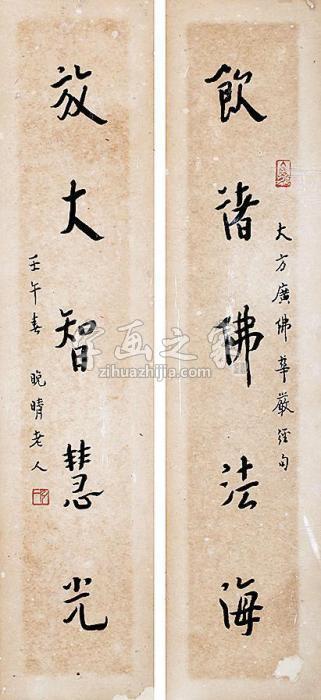 飲諸佛法海
大方廣佛華嚴經句
放大智慧光
壬午春 晚晴老人
字画之家
zihuazhijia.com